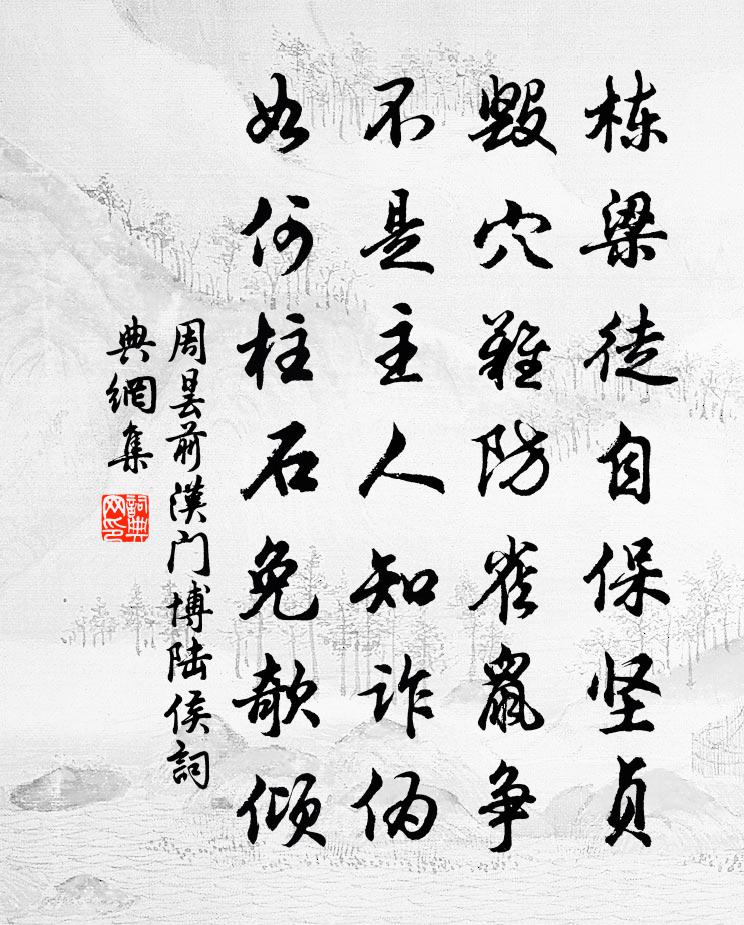 栋梁徒自保坚贞
毁穴难防雀鼠争
不是主人知诈伪
如何柱石免欹倾
周昙前漢门博陆侯詞
典網集
詞典
网印